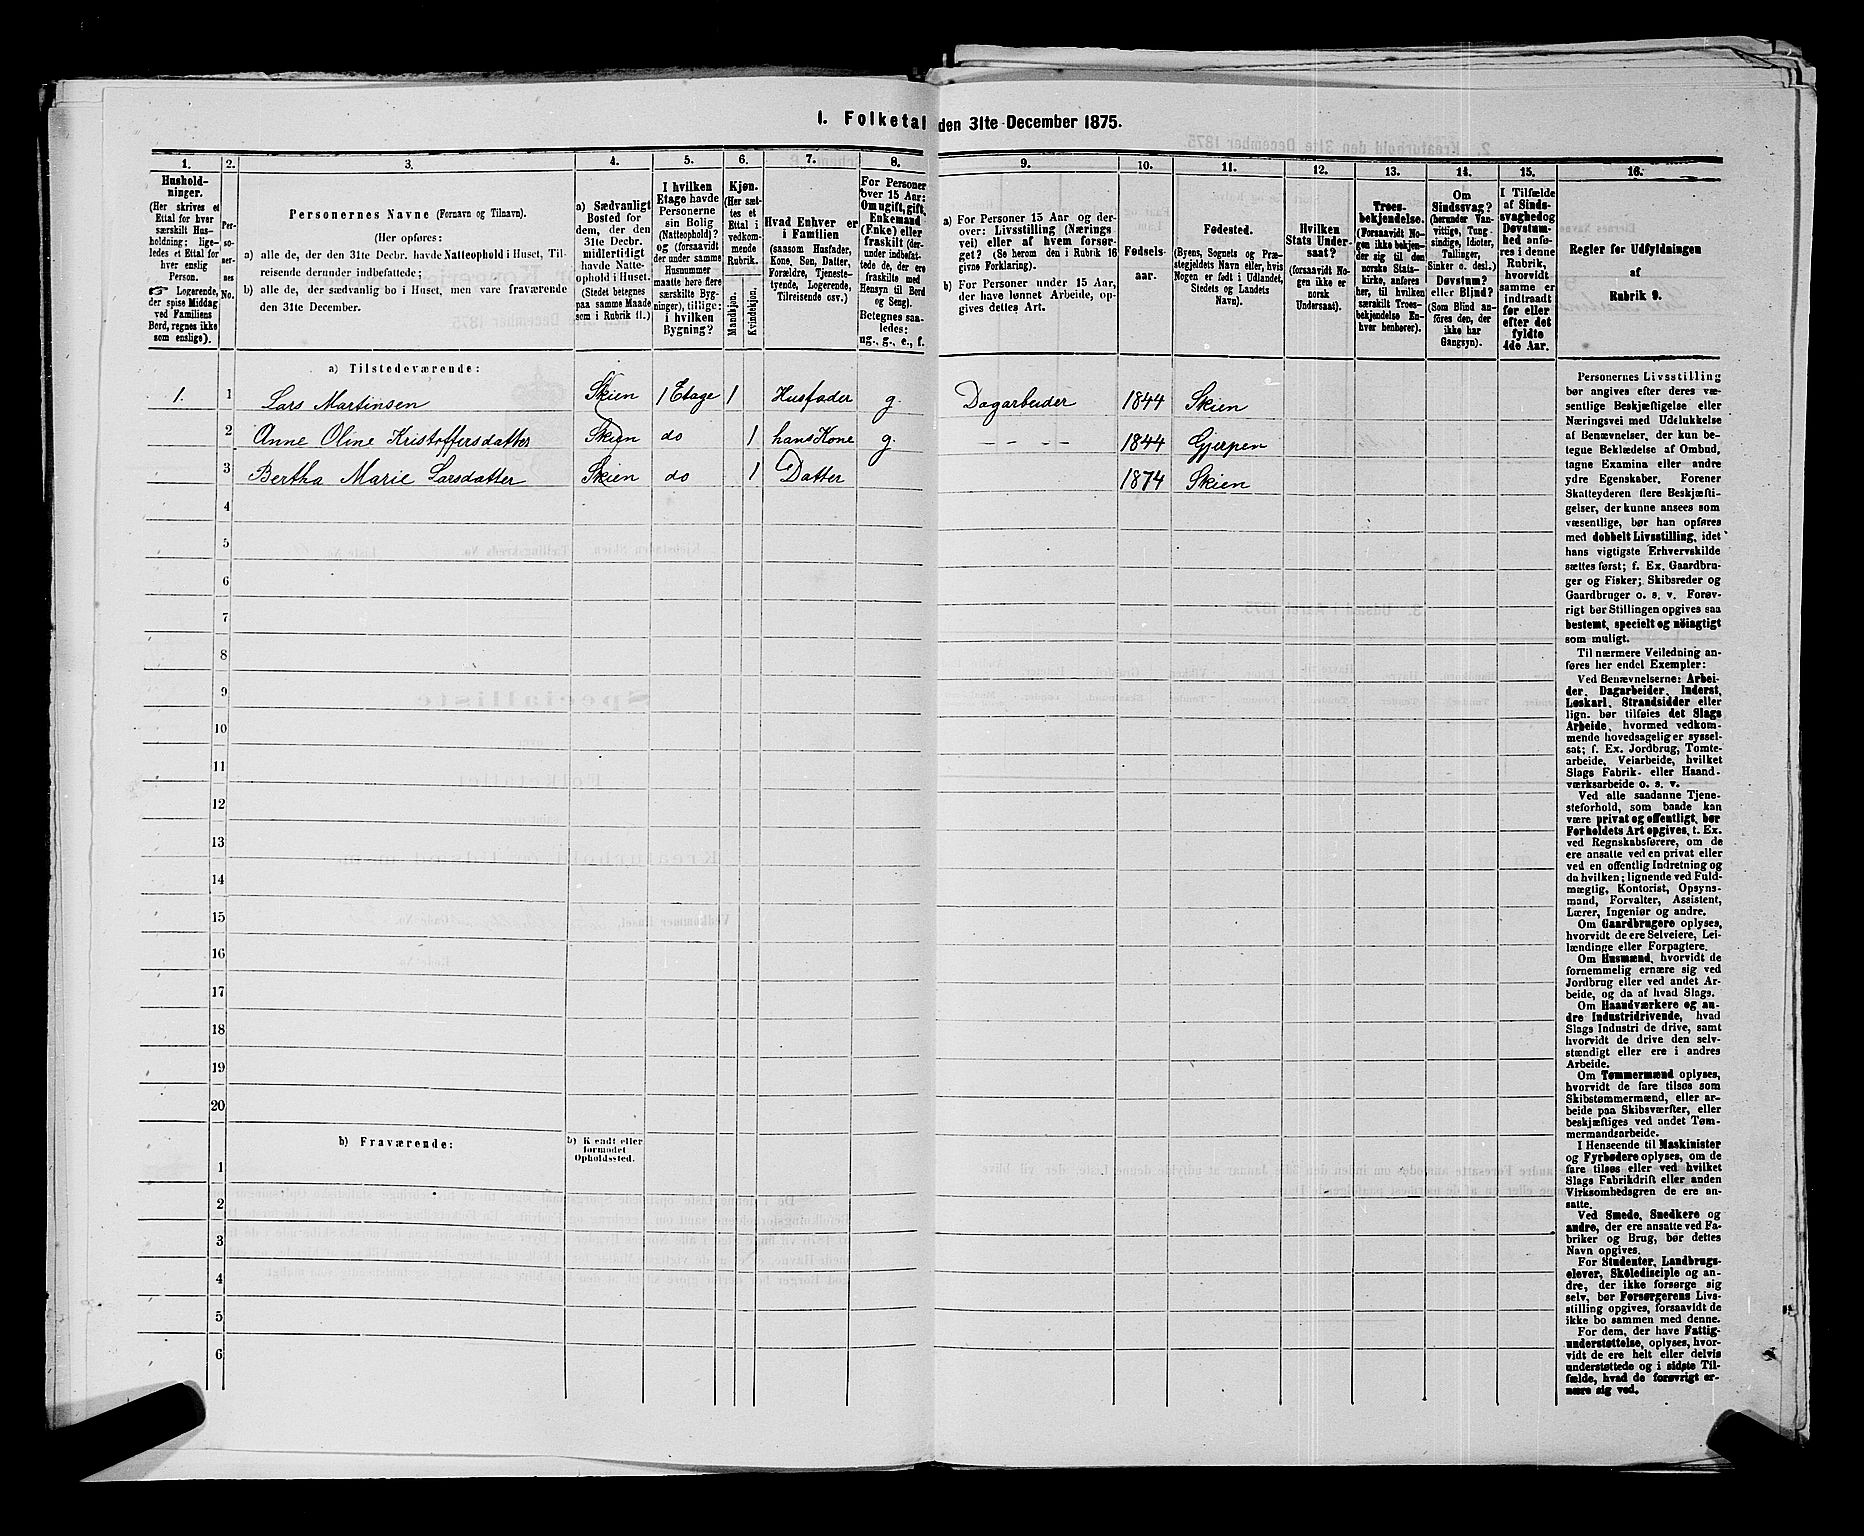 I. Folketal den 31te December 1875.
1. 2. 3. 4. 5. 6. 7. 8. 9. 10. 11. 12. 13. 14. 15. 16.
Hushold-
ninger.
(Her skrives et
Ettal for hver
særskilt Hus-
holdning; lige-
ledes et Ettal for
hver enslig
Person.
☞ Logerende,
der spise Middag
ved Familiens
Bord, regnes ikke
som enslige).
Per-
so-
ner-
nes
No.
Personernes Navne (Fornavn og Tilnavn).
(Her opføres:
a) alle de, der den 31te Decbr. havde Natteophold i Huset, Til-
reisende derunder indbefattede;
b) alle de, der sædvanlig bo i Huset, men vare fraværende
den 31te December.
a) Sædvanligt
Bosted for
dem, der den
31te Decbr.
midlertidigt
havde Natte-
ophold i Huset.
(Stedet betegnes
paa samme Maade
som i Rubrik 11.)
I hvilken
Etage havde
Personerne
sin Bolig
(Natteophold)?
og (forsaavidt
der under samme
Husnummer
maatte høre flere
særskilte Byg-
ninger), tillige:
i hvilken
Bygning?
Kjøn.
(Her sæt-
tes et
Ettal i
vedkom-
mende
Rubrik.
Mandkjøn.
Kvindekjøn.
Hvad Enhver er
i Familien
(saasom Husfader,
Kone, Søn, Datter,
Forældre, Tjeneste-
tyende, Logerende,
Tilreisende osv.)
For Personer
over 15 Aar:
Om ugift, gift,
Enkemand
(Enke) eller
fraskilt (der-
under indbefat-
tede de, der ere
fraskilte med
Hensyn til Bord
og Seng).
Betegnes saa-
ledes:
ug., g., e., f.
a) For Personer 15 Aar og der-
over: Livsstilling (Nærings
vei) eller af hvem forsør-
get? (Se herom den i Rubrik 16
givne Forklaring).
b) For Personer under 15 Aar,
der have lønnet Arbeide, op-
gives dettes Art.
Fødsels-
aar.
Fødested.
(Byens, Sognets og Præ-
stegjeldets Navn eller, hvis
Nogen er født i Udlandet,
Stedets og Landets
Navn).
Hvilken
Stats Under-
saat?
(forsaavidt No-
gen ikke er
norsk
Undersaat).
Troes-
bekjendelse.
(Forsaavidt No-
gen ikke bekjen-
der sig til den
norske Stats-
kirke, anføres
her, til hvilken
særskilt Troes-
bekjendelse En-
hver henhører).
Om
Sindssvag?
(herunder Van-
vittige, Tung-
sindige, Idioter,
Tullinger,
Sinker o. desl.)
Døvstum?
eller Blind?
(Som Blind an-
føres den, der
ikke har
Gangsyn).
I Tilfælde
af Sinds-
svaghed og
Døvstum-
hed anfø-
res i denne
Rubrik,
hvorvidt
samme er
indtraadt
før eller
efter det
fyldte
4de Aar.
Regler for Udfyldningen
af
Rubrik 9.
a) Tilstedeværende:
1. 1 Lars Martinsen Skien 1 Etage 1 Husfader g. Dagarbeider 1844 Skien
2 Anne Oline Kristoffersdatter Skien do 1 hans Kone g. - - - 1844 Gjerpen
3 Bertha Marie Larsdatter Skien do 1 Datter 1874 Skien
4
5
6
7
8
9
10
11
12
13
14
15
16
17
18
19
20
b) Fraværende: b) Kjendt eller
formodet
Opholdssted.
1
2
3
4
5
6
Personernes Livsstilling
bør angives efter deres væ-
sentlige Beskjæftigelse eller
Næringsvei med Udelukkelse
af Benævnelser, der kun be-
tegne Beklædelse af Ombud,
tagne Examina eller andre
ydre Egenskaber. Forener
Skatteyderen flere Beskjæfti-
gelser, der kunne ansees som
væsentlige, bør han opføres
med dobbelt Livsstilling, idet
hans vigtigste Erhvervskilde
sættes først; f. Ex. Gaardbru-
ger og Fisker; Skibsreder og
Gaardbruger o. s. v. Forøv-
rigt bør Stillingen opgives saa
bestemt, specielt og nöiagtigt
som muligt.
Til nærmere Veiledning an-
føres her endel Exempler:
Ved Benævnelserne: Arbei-
der, Dagarbeider, Inderst,
Løskarl, Strandsidder eller
lign. bør tilføies det Slags
Arbeide, hvormed vedkom-
mende hovedsagelig er syssel-
sat; f. Ex. Jordbrug, Tomte-
arbeide, Veiarbeide, hvilket
Slags Fabrik- eller Haand-
værksarbeide o. s. v.
Ved alle saadanne Tjene-
steforhold, som baade kan
være privat og offentligt, bør
Forholdets Art opgives, t. Ex.
ved Regnskabsførere, om de
ere ansatte ved en privat eller
ved en offentlig Indretning og
da hvilken; lignende ved Fuld-
mægtig, Kontorist, Opsyns-
mand, Forvalter, Assistent,
Lærer, Ingeniør og andre.
Om Gaardbrugere oplyses,
hvorvidt de ere Selveiere, Lei-
lændinge eller Forpagtere.
Om Husmænd, hvorvidt de
fornemmelig ernære sig ved
Jordbrug eller ved andet Ar-
beide, og da af hvad Slags.
Om Haandværkere og an-
dre Industridrivende, hvad
Slags Industri de drive, samt
hvorvidt de drive den selv-
stændigt eller ere i andres
Arbeide.
Om Tømmermænd oplyses,
hvorvidt de fare tilsøs som
Skibstømmermænd, eller ar-
beide paa Skibsværfter, eller
beskjæftiges ved andet Tøm-
mermandsarbeide.
I Henseende til Maskinister
og Fyrbødere oplyses, om de
fare tilsøs eller ved hvilket
Slags Fabrikdrift eller anden
Virksomhedsgren de ere an-
satte.
Ved Smede, Snedkere og
andre, der ere ansatte ved Fa-
briker og Brug, bør dettes
Navn opgives.
For Studenter, Landbrugs-
elever, Skoledisciple og an-
dre, der ikke forsørge sig
selv, bør Forsørgerens Livs-
stilling opgives, forsaavidt de
ikke bo sammen med denne.
For dem, der have Fattig-
understøttelse, oplyses, hvor-
vidt de ere helt eller delvis
understøttede og i sidste Til-
fælde, hvad de forøvrigt er-
nære sig ved.